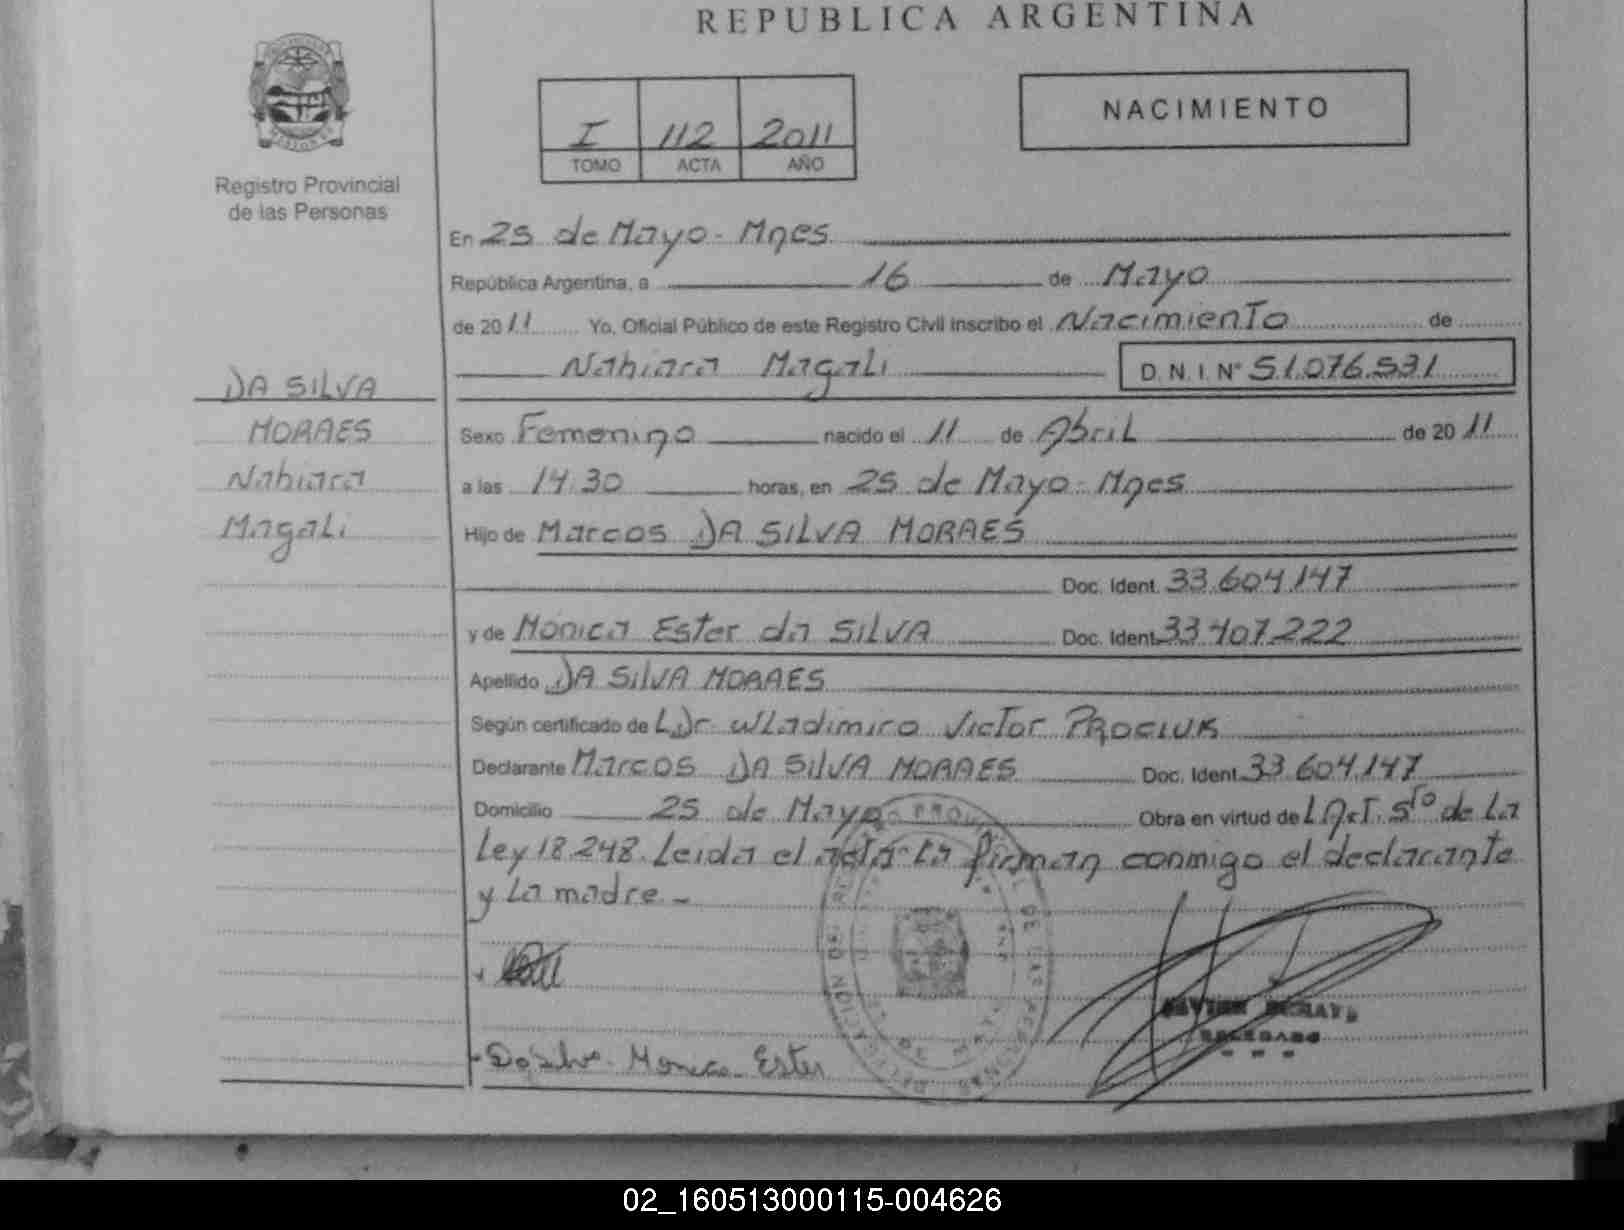 REPUBLICA ARGENTINA
Registro Provincial
de las Personas
I 112 2011
TOMO ACTA AÑO
NACIMIENTO
En 25 de Mayo - Mnes
República Argentina, a 16 de Mayo
de 2011 Yo, Oficial Público de este Registro Civil inscribo el Nacimiento de
Nahiara Magali D. N. I. Nº 51.076.531
DA SILVA
MORAES
Nahiara
Magali
Sexo Femenino nacido el 11 de Abril de 2011
a las 14:30 horas, en 25 de Mayo - Mnes
Hijo de Marcos DA SILVA MORAES
Doc. Ident. 33.604.147
y de Mónica Ester da SILVA Doc. Ident. 33.407.222
Apellido DA SILVA MORAES
Según certificado de L Dr. Wladimiro Victor PROCIUK
Declarante Marcos DA SILVA MORAES Doc. Ident. 33.604.147
Domicilio 25 de Mayo Obra en virtud de L Art. 5to de La
Ley 18.248. Leida el acta La firman conmigo el declarante
y La madre. -
Da Silva Monica Ester
DELEGADO
02_160513000115-004626